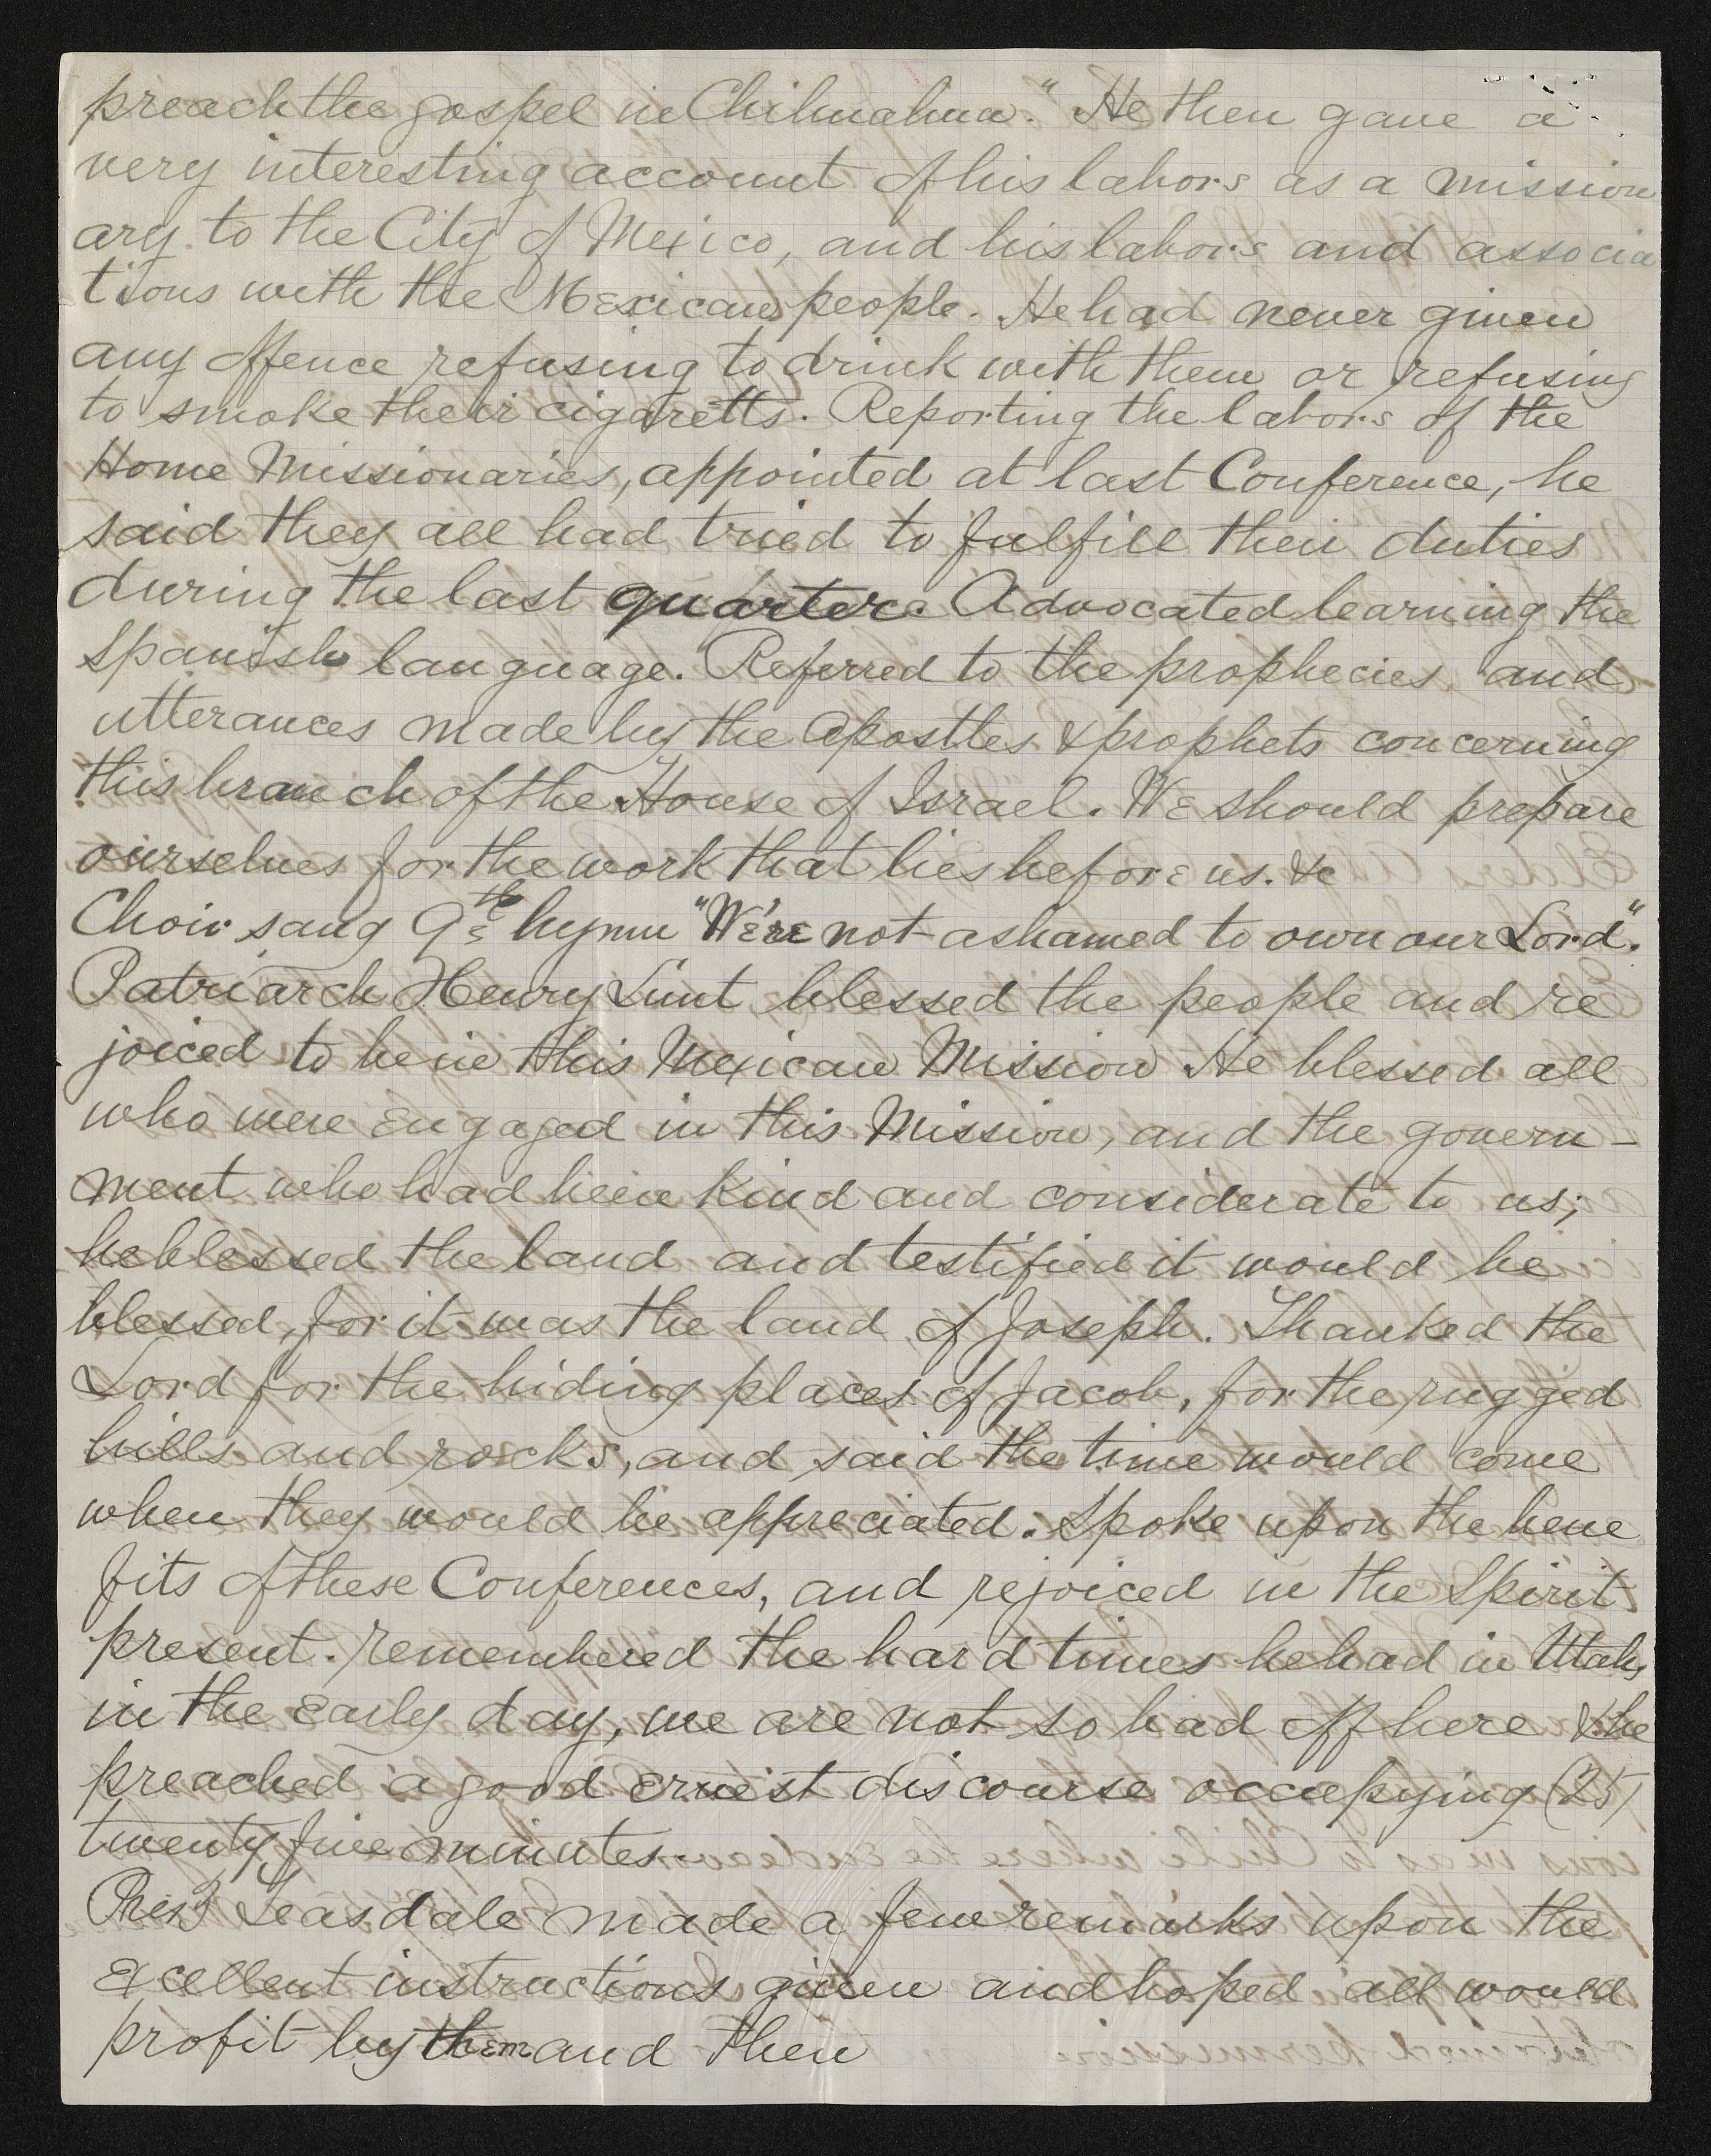 preach the gospel in Chihuahua." He then gave a
very interesting account of his labors as a mission
ary to the City of Mexico, and his labors and associa
tions with the Mexican people. He had never given
any offence refusing to drink with them or refusing
to smoke their cigaretts. Reporting the labors of the
Home Missionaries, appointed at last Conference, he
said they all had tried to fulfill their duties
during the last quarter. Advocated learning the
Spanish language. Referred to the prophecies and
utterances made by the Apostles & prophets concerning
this branch of the House of Israel. We should prepare
ourselves for the work that lies before us. &c
Choir sang 9th hymn "We're not ashamed to own our Lord".
Patriarch Henry Lunt blessed the people and re
joiced to be in this Mexican Mission He blessed all
who were engaged in this Mission, and the govern-
ment who had been kind and considerate to us;
he blessed the land and testified it would be
blessed, for it was the land of Joseph. Thanked the
Lord for the hiding places of Jacob, for the rugged
hills and rocks, and said the time would come
when they would be appreciated. Spoke upon the bene
fits of these Conferences, and rejoiced in the Spirit
present. remembered the hard times he had in Utah,
in the early day, we are not so bad off here & he
preached a good ernest discourse occupying (25)
twenty five minutes.
Prest Teasdale made a few remarks upon the
excellent instructions given and hoped all would
profit by them and then